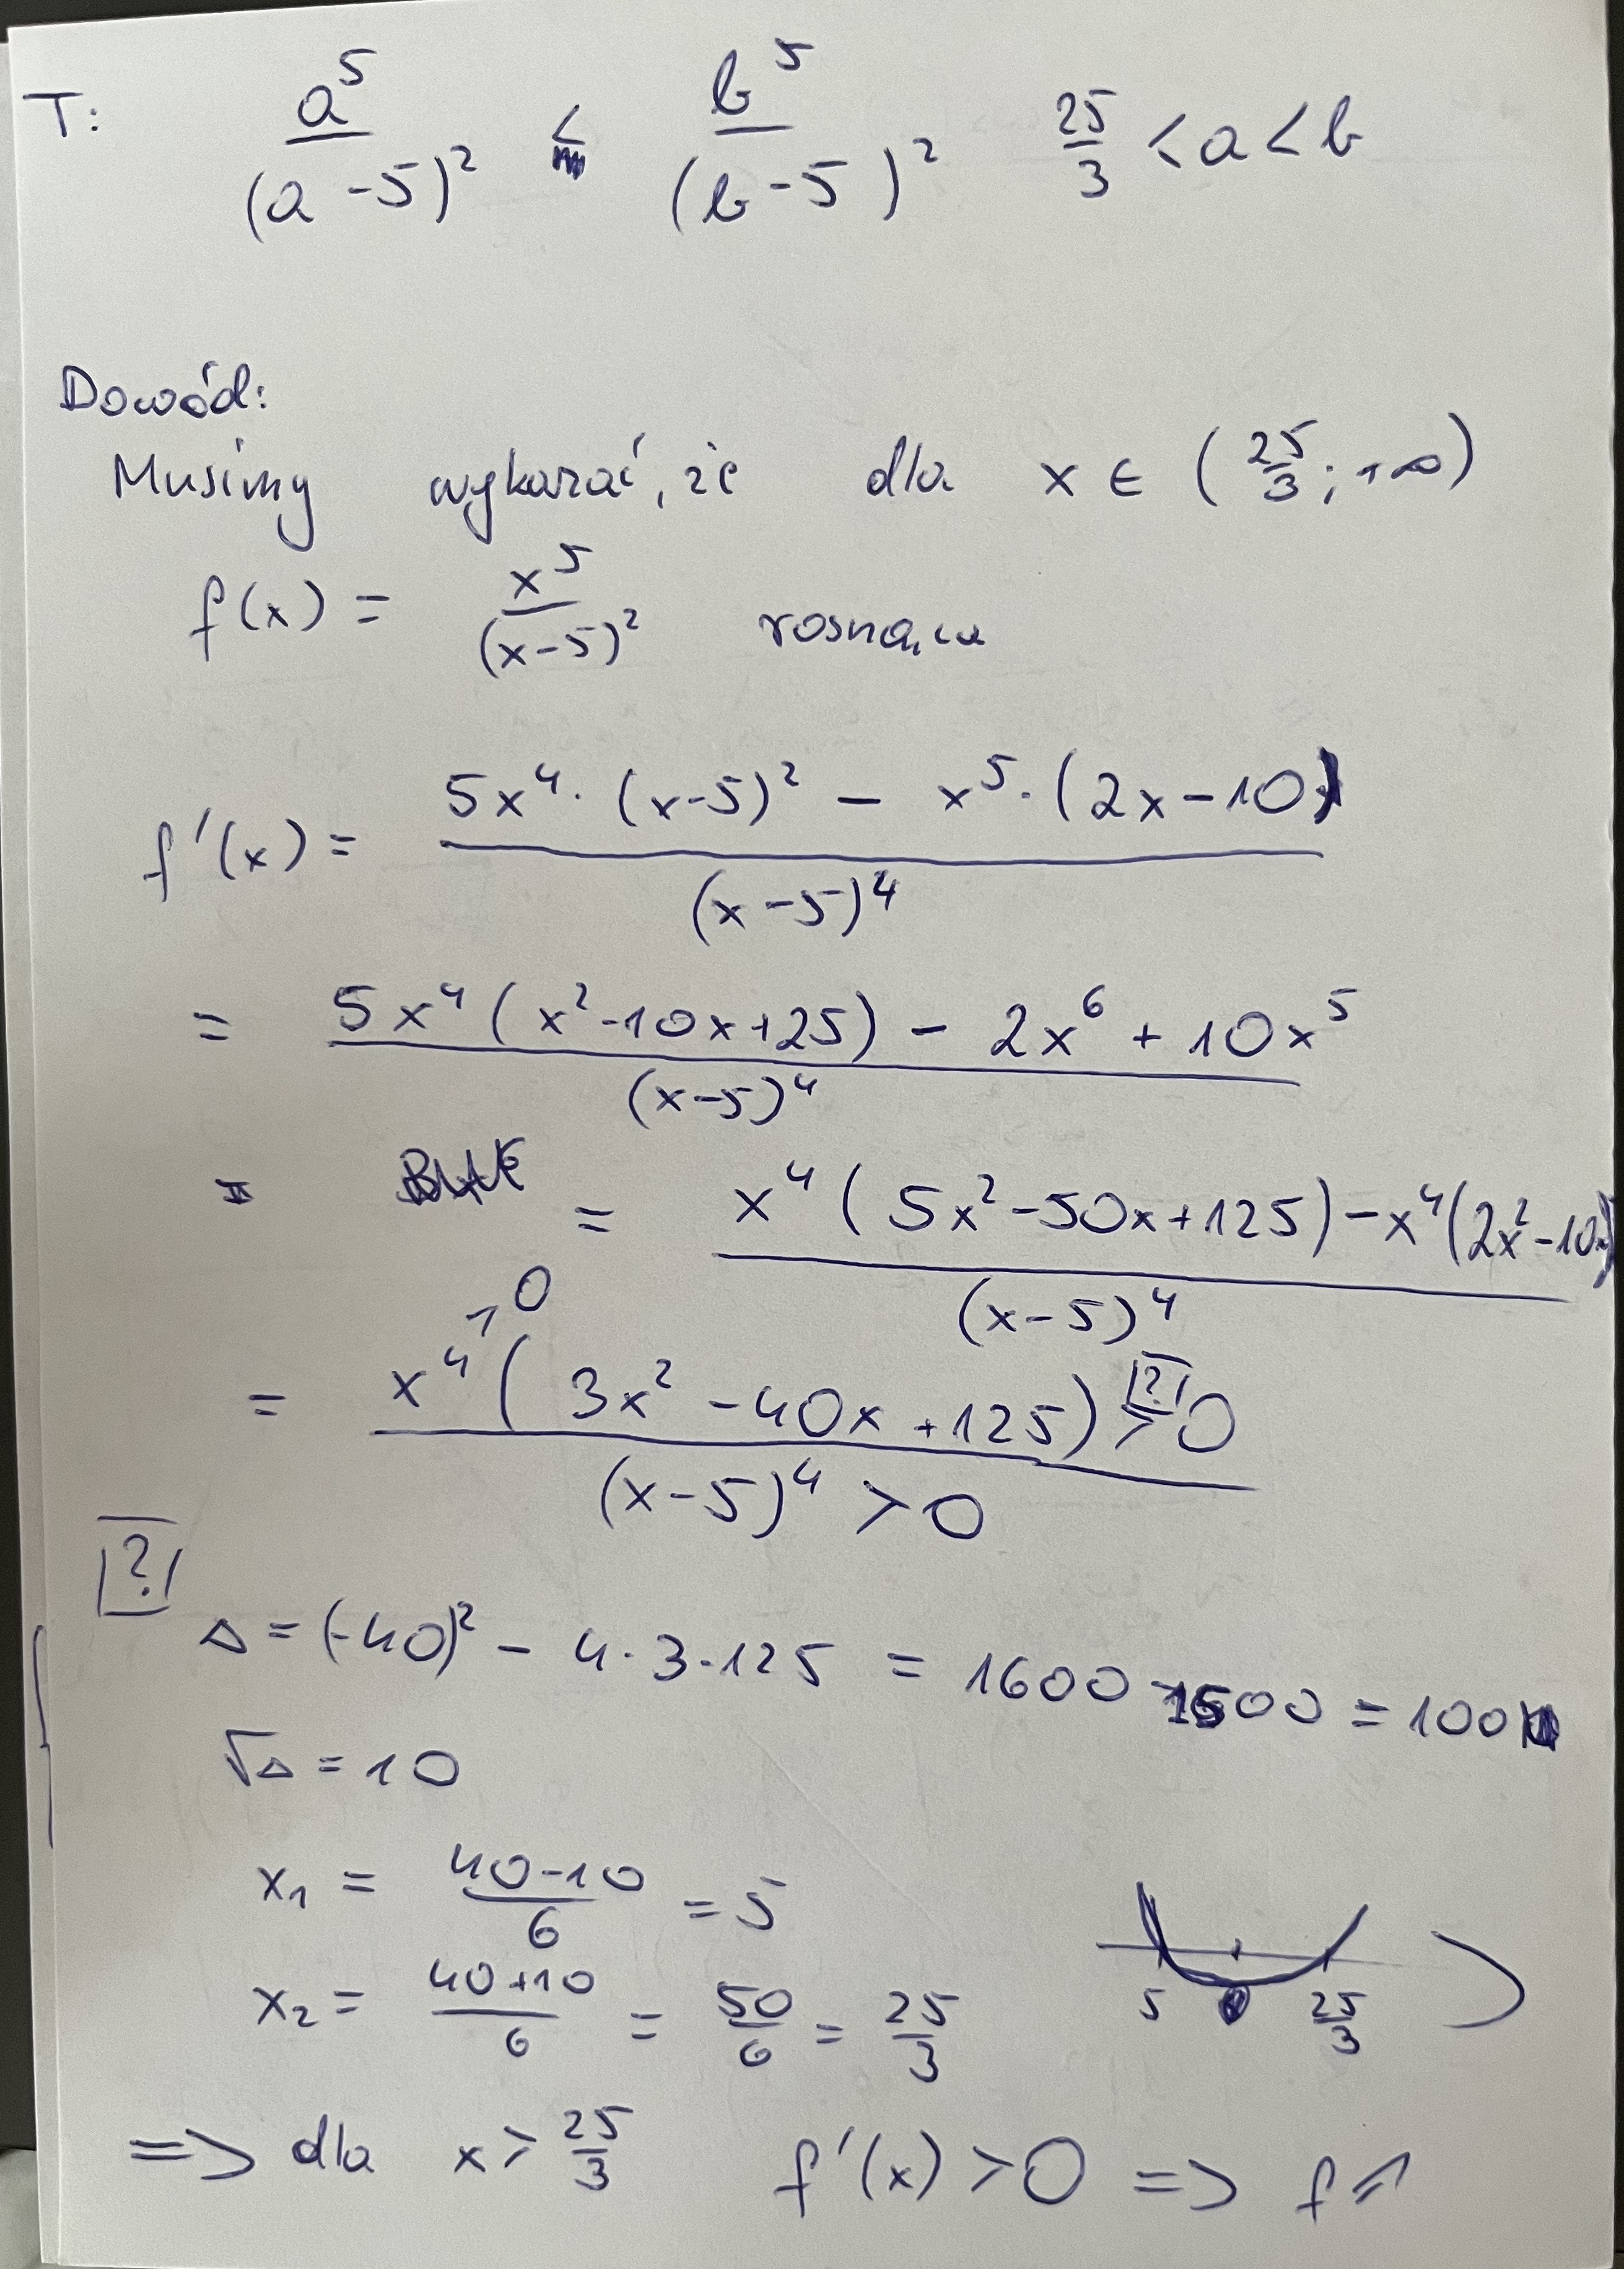 T: a⁵/(a-5)² < b⁵/(b-5)² 25/3 < a < b
Dowód:
Musimy wykazać, że dla x ∈ (25/3; +∞)
f(x) = x⁵/(x-5)² rosnąca
f'(x) = (5x⁴·(x-5)² - x⁵·(2x-10))/(x-5)⁴
= (5x⁴(x²-10x+25) - 2x⁶ + 10x⁵)/(x-5)⁴
= (x⁴(5x²-50x+125) - x⁴(2x²-10x))/(x-5)⁴
>0
= x⁴(3x² - 40x + 125) [?] > 0 / (x-5)⁴ > 0
[?]
Δ = (-40)² - 4·3·125 = 1600 - 1500 = 100
√Δ = 10
x₁ = (40-10)/6 = 5
x₂ = (40+10)/6 = 50/6 = 25/3
5 25/3
=> dla x > 25/3 f'(x) > 0 => f ↗